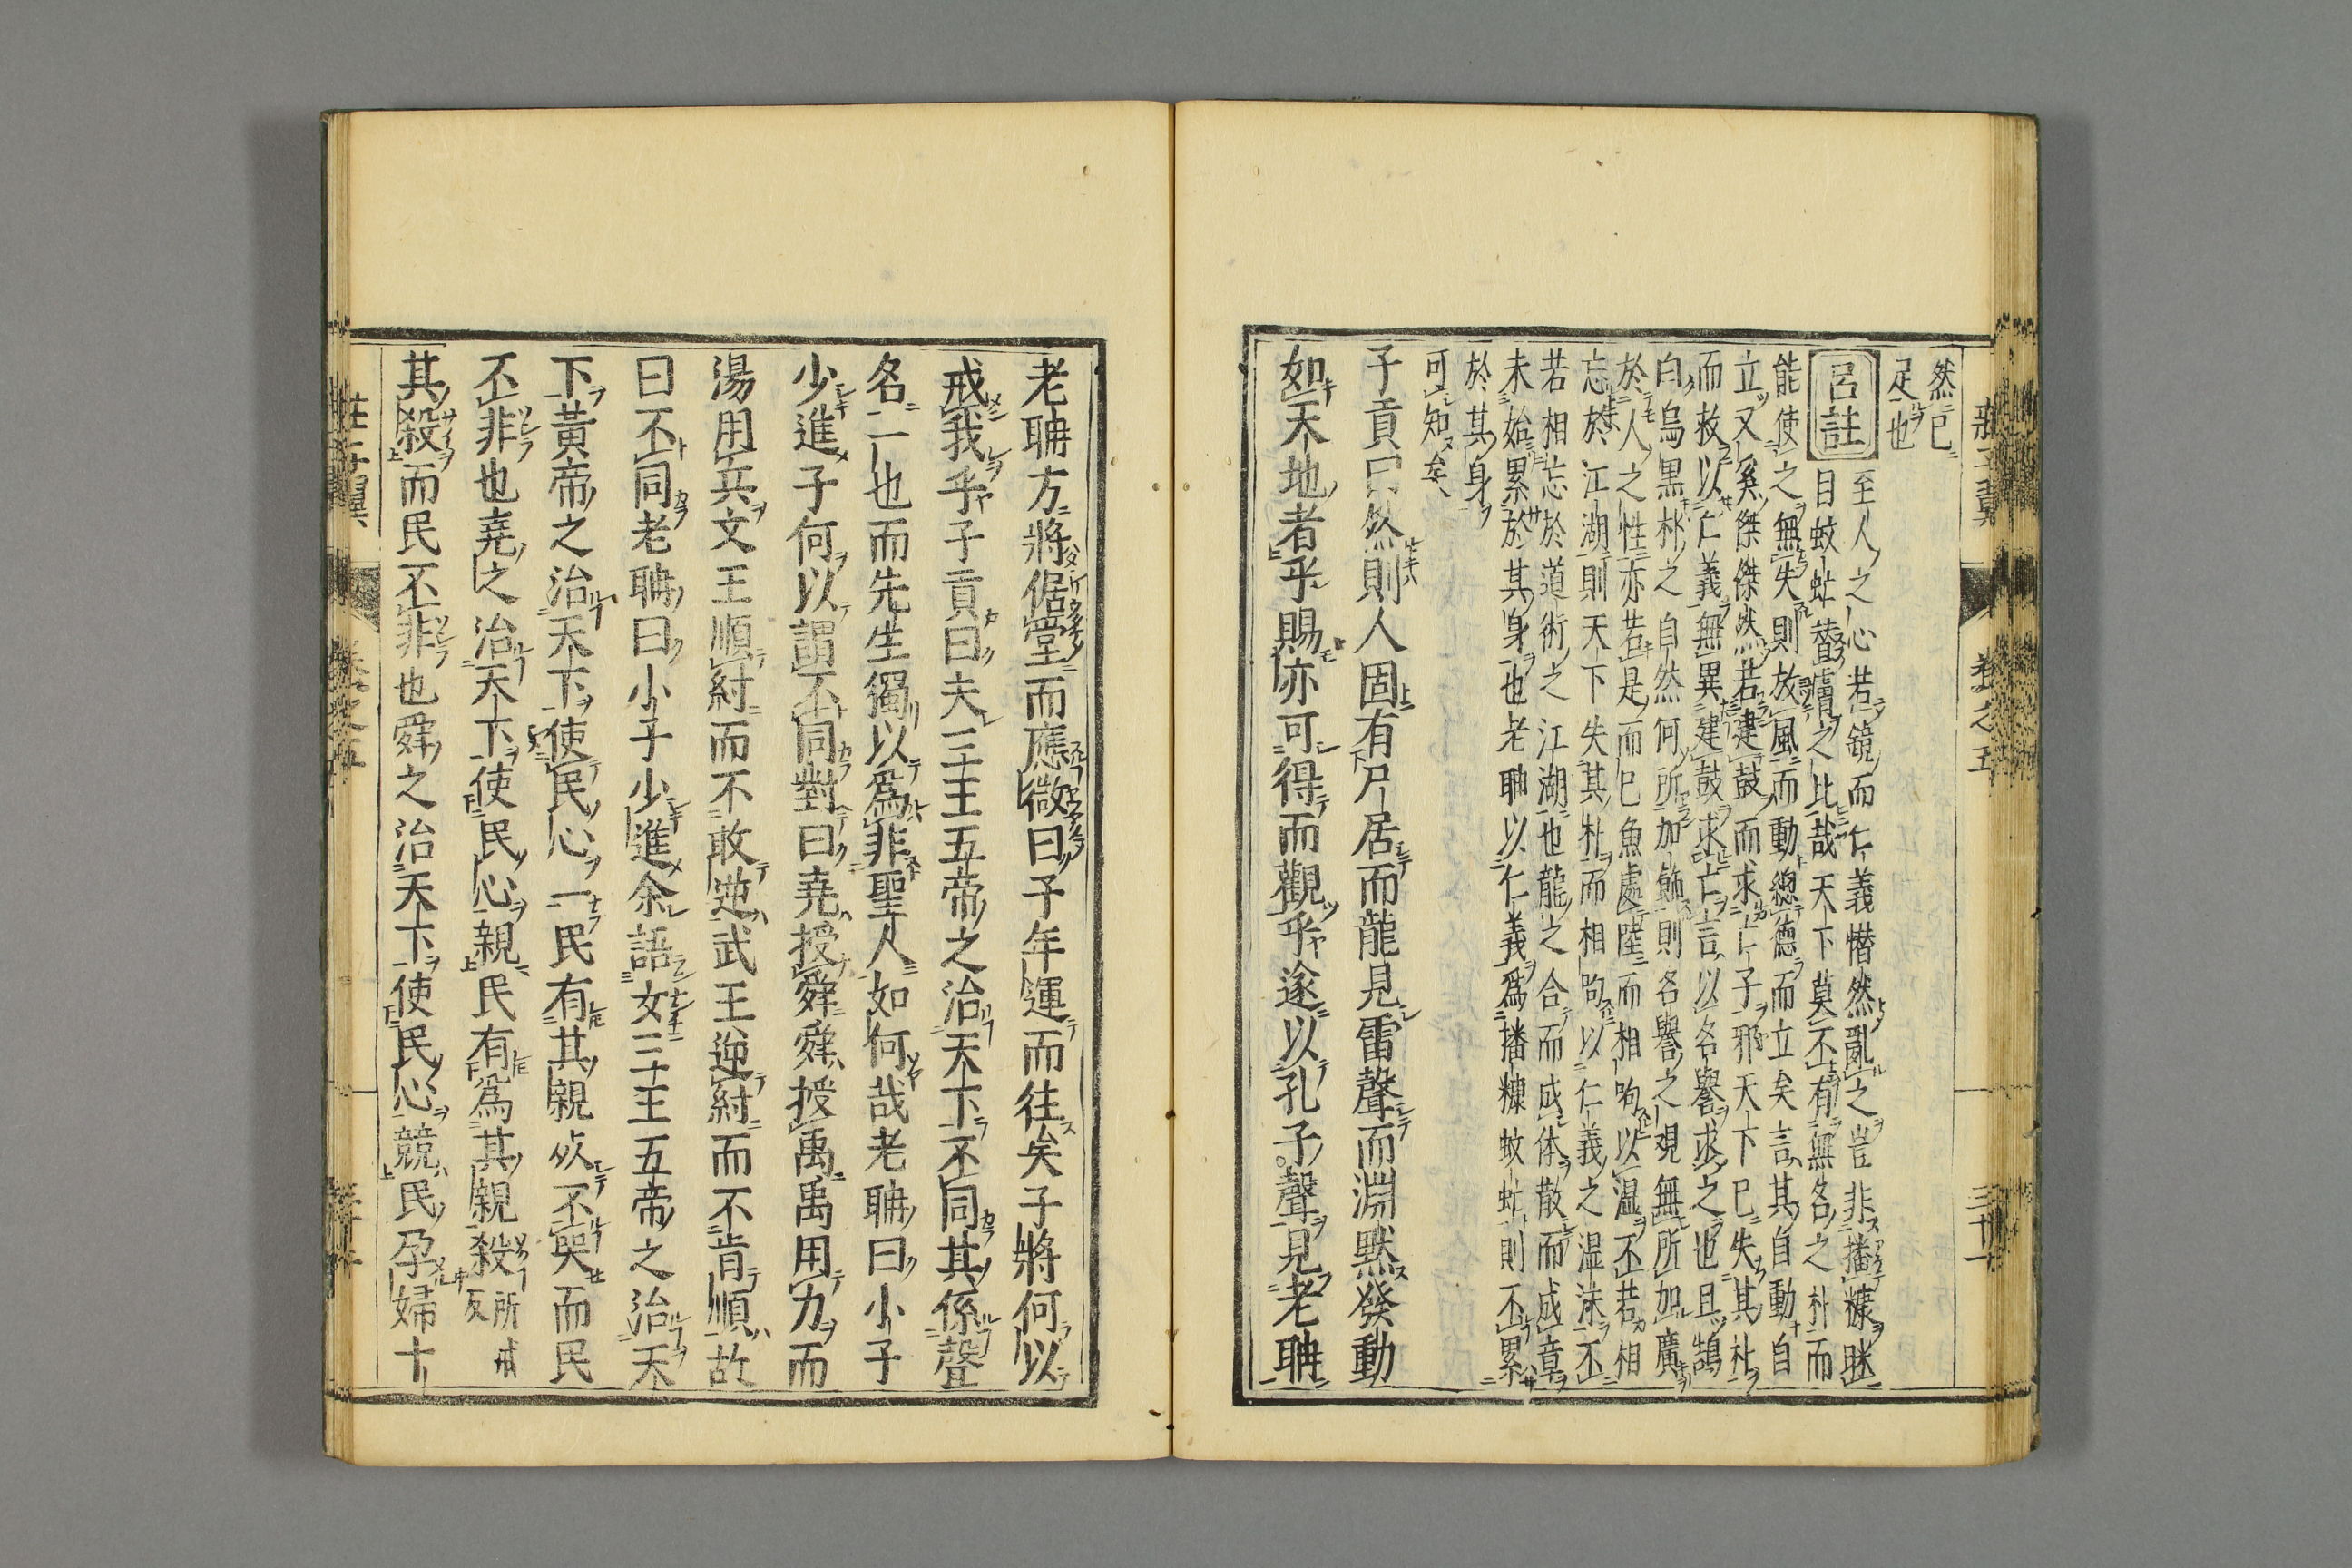 然已
足也
呂註
至人之心若鏡而仁義憯然亂之豈非播糠眯
目蚊虻噆膚之比哉天下莫不有無名之朴而
能使之無失則放風而動緫德而立矣言其自動自
立又奚傑傑然若建鼓而求亡子邪天下已失其朴
而救以仁義無異建鼓求亡言以名譽求之也且鵠
白烏黒朴之自然何所加飾則名譽之覌無所加廣
於人之性亦若是而已魚處陸而相呴以濕不若相
忘於江湖則天下失其朴而相呴以仁義之湿沫不
若相忘於道術之江湖也龍之合而成体散而成章
未始累於其身也老聃以仁義爲播糠蚊虻則不累
於其身
可知矣
子貢曰然則人固有尸居而龍見雷聲而淵黙發動
如天地者乎賜亦可得而觀乎遂以孔子聲見老聃
老聃方將倨堂而應微曰予年運而往矣子將何以
戒我乎子貢曰夫三王五帝之治天下不同其係聲
名一也而先生獨以爲非聖人如何哉老聃曰小子
少進子何以謂不同對曰堯授舜舜授禹禹用力而
湯用兵文王順紂而不敢逆武王逆紂而不肯順故
曰不同老聃曰小子少進余語女三王五帝之治天
下黃帝之治天下使民心一民有其親死不哭而民
不非也堯之治天下使民心親民有爲其親殺所戒反
其殺而民不非也舜之治天下使民心競民孕婦十
莊子翼 卷之五 三十一